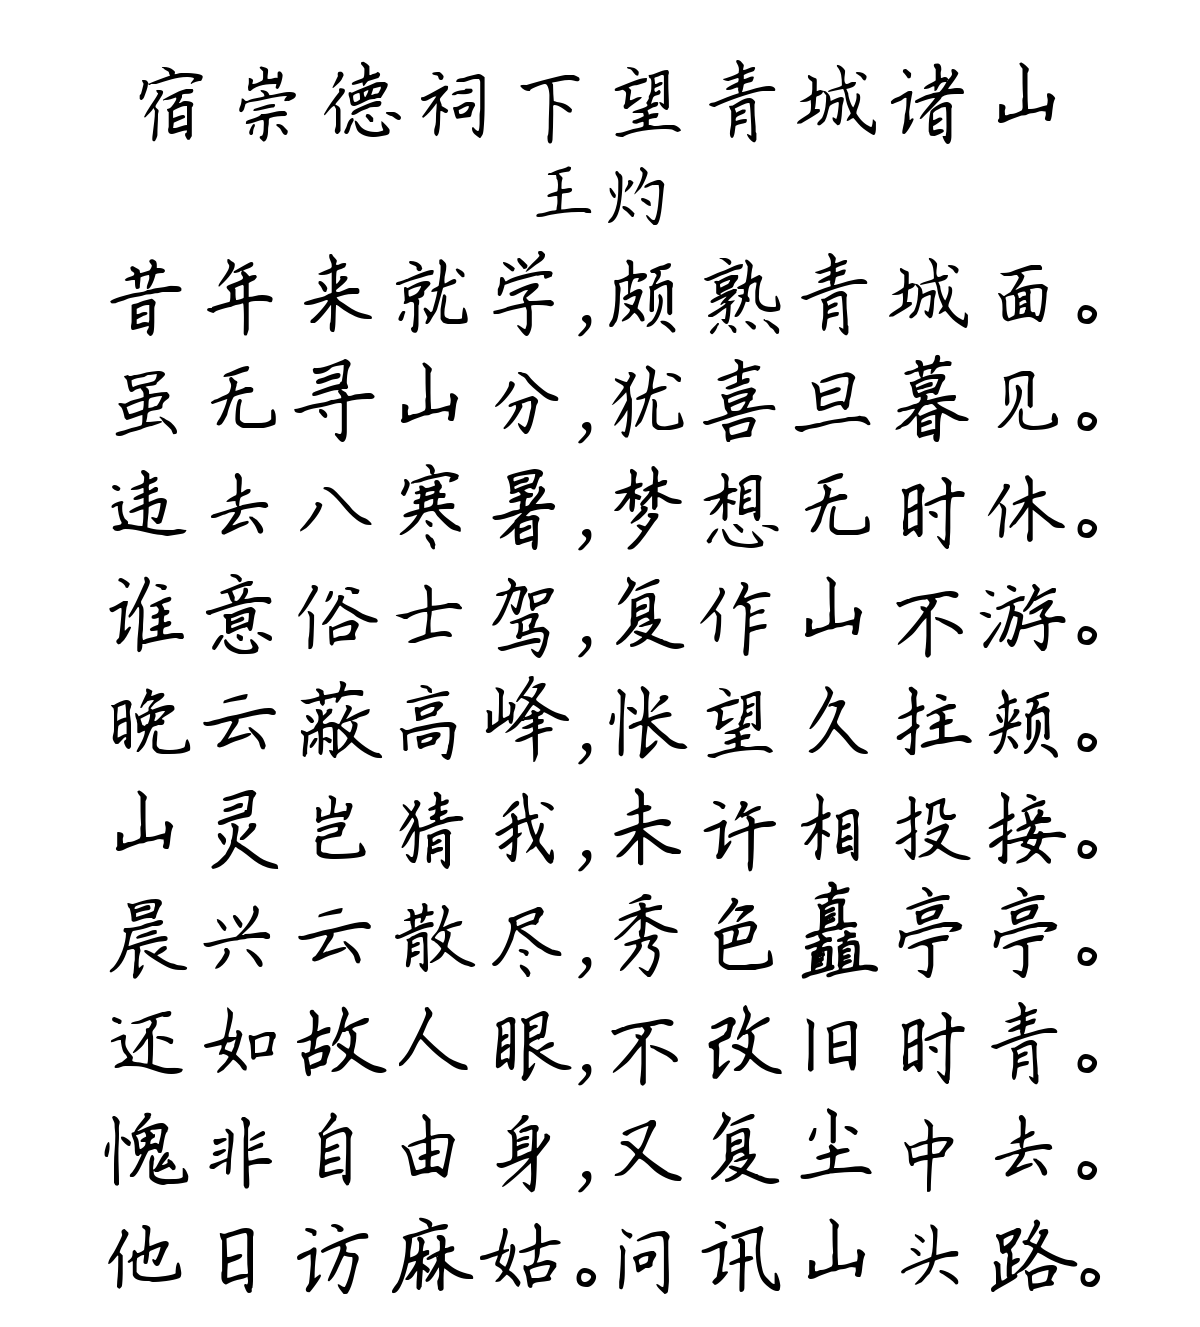 宿崇德祠下望青城诸山
王灼
昔年来就学,颇熟青城面。
虽无寻山分,犹喜旦暮见。
违去八寒暑,梦想无时休。
谁意俗士驾,复作山不游。
晚云蔽高峰,怅望久拄颊。
山灵岂猜我,未许相投接。
晨兴云散尽,秀色矗亭亭。
还如故人眼,不改旧时青。
愧非自由身,又复尘中去。
他日访麻姑。问讯山头路。